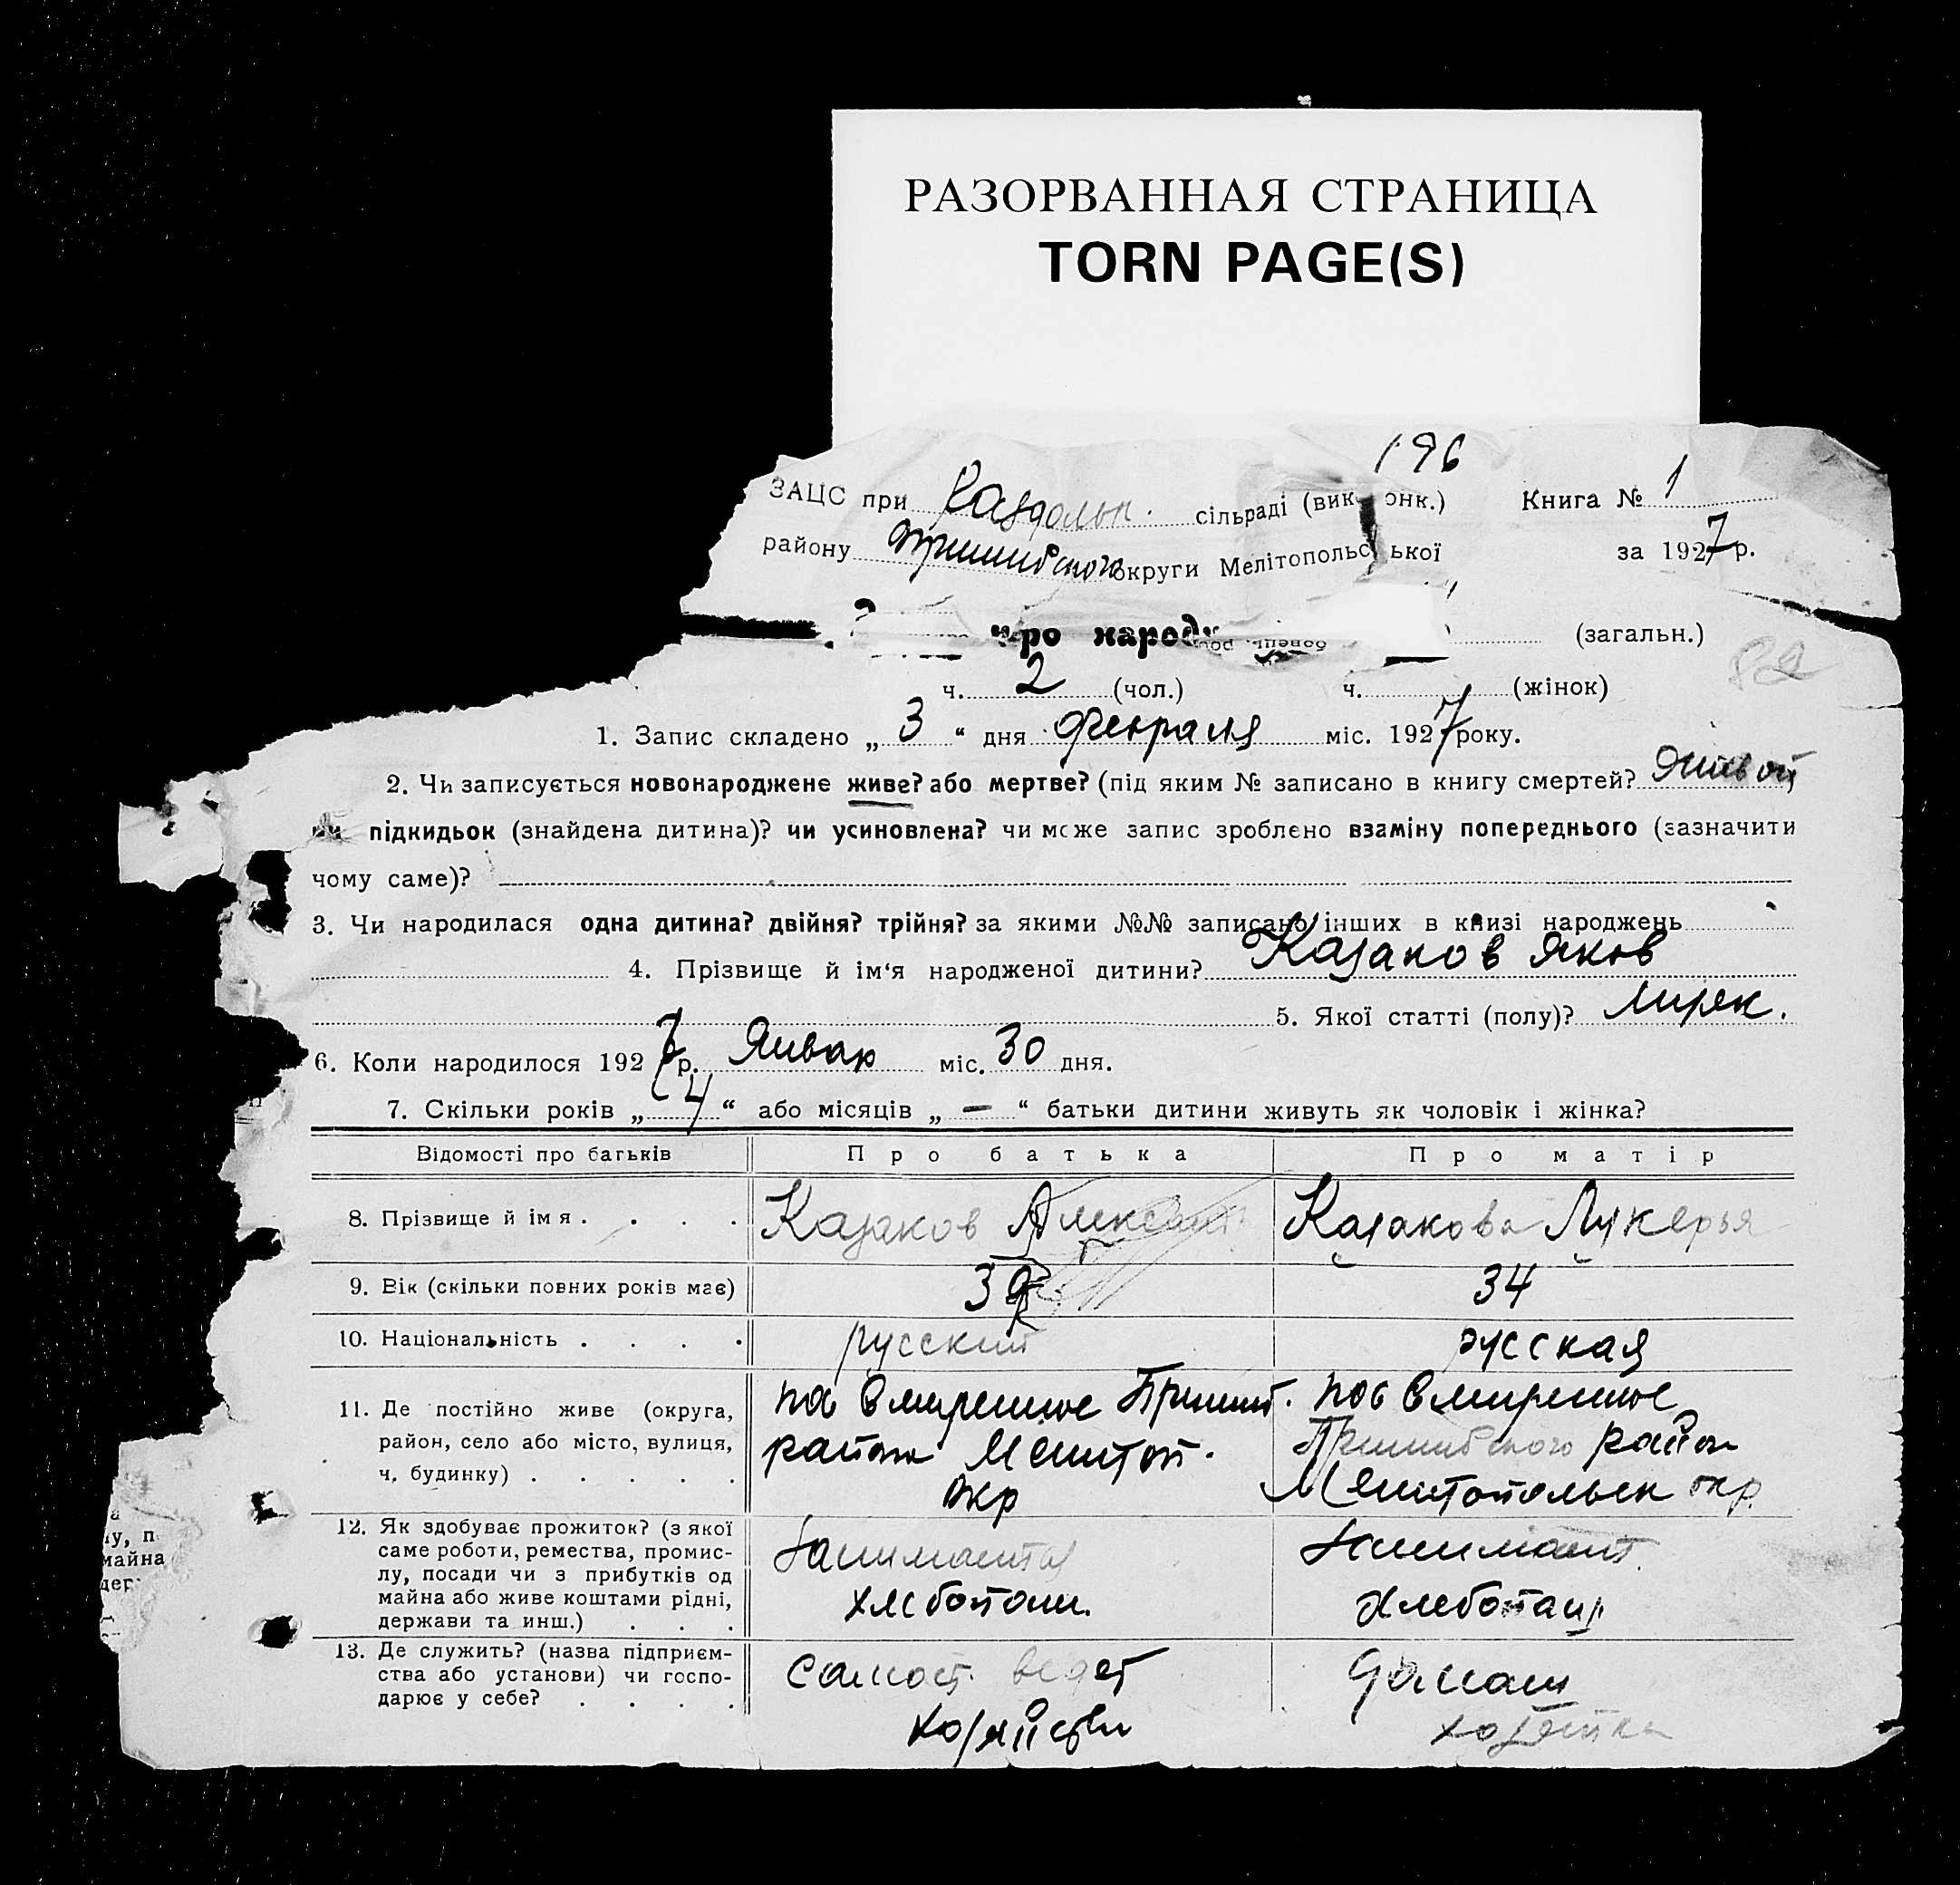 РАЗОРВАННАЯ СТРАНИЦА
TORN PAGE(S)
196
ЗАЦС при Раздольн. сільраді (вик онк.) Книга № 1
району Пришибского округи Мелітопольс ької за 1927 р.
про народ (загальн.)
82
ч. 2 (чол.) ч. (жінок)
1. Запис складено „ 3 “ дня февраля міс. 1927 року.
2. Чи записується новонароджене живе? або мертве? (під яким № записано в книгу смертей? живой
чи підкидьок (знайдена дитина)? чи усиновлена? чи може запис зроблено взаміну попереднього (зазначити
чому саме)?
3. Чи народилася одна дитина? двійня? трійня? за якими №№ записано інших в книзі народжень
4. Прізвище й ім‘я народженої дитини? Казаков Яков
5. Якої статті (полу)? мужск.
6. Коли народилося 1927 р. Январ міс. 30 дня.
7. Скільки років „ 4 “ або місяців „ — “ батьки дитини живуть як чоловік і жінка?
Відомості про батьків Про батька Про матір
8. Прізвище й імя . . . . Казаков Александ Казакова Лукерья
9. Вік (скільки повних років має) 39 34
10. Національність . . . . русский русская
11. Де постійно живе (округа, район, село або місто, вулиця, ч. будинку) . . . . .
пос Смиренное Пришиб. района Мелитоп. окр
пос Смиренное Пришибского район Мелитопольск окр.
12. Як здобуває прожиток? (з якої саме роботи, ремества, промислу, посади чи з прибутків од майна або живе коштами рідні, держави та инш.) . . .
занимается хлебопаш.
занимает. хлебопаш
13. Де служить? (назва підприємства або установи) чи господарює у себе? . . . .
самост. ведет хозяйство
домаш хозяйка
у, п
майна
дер